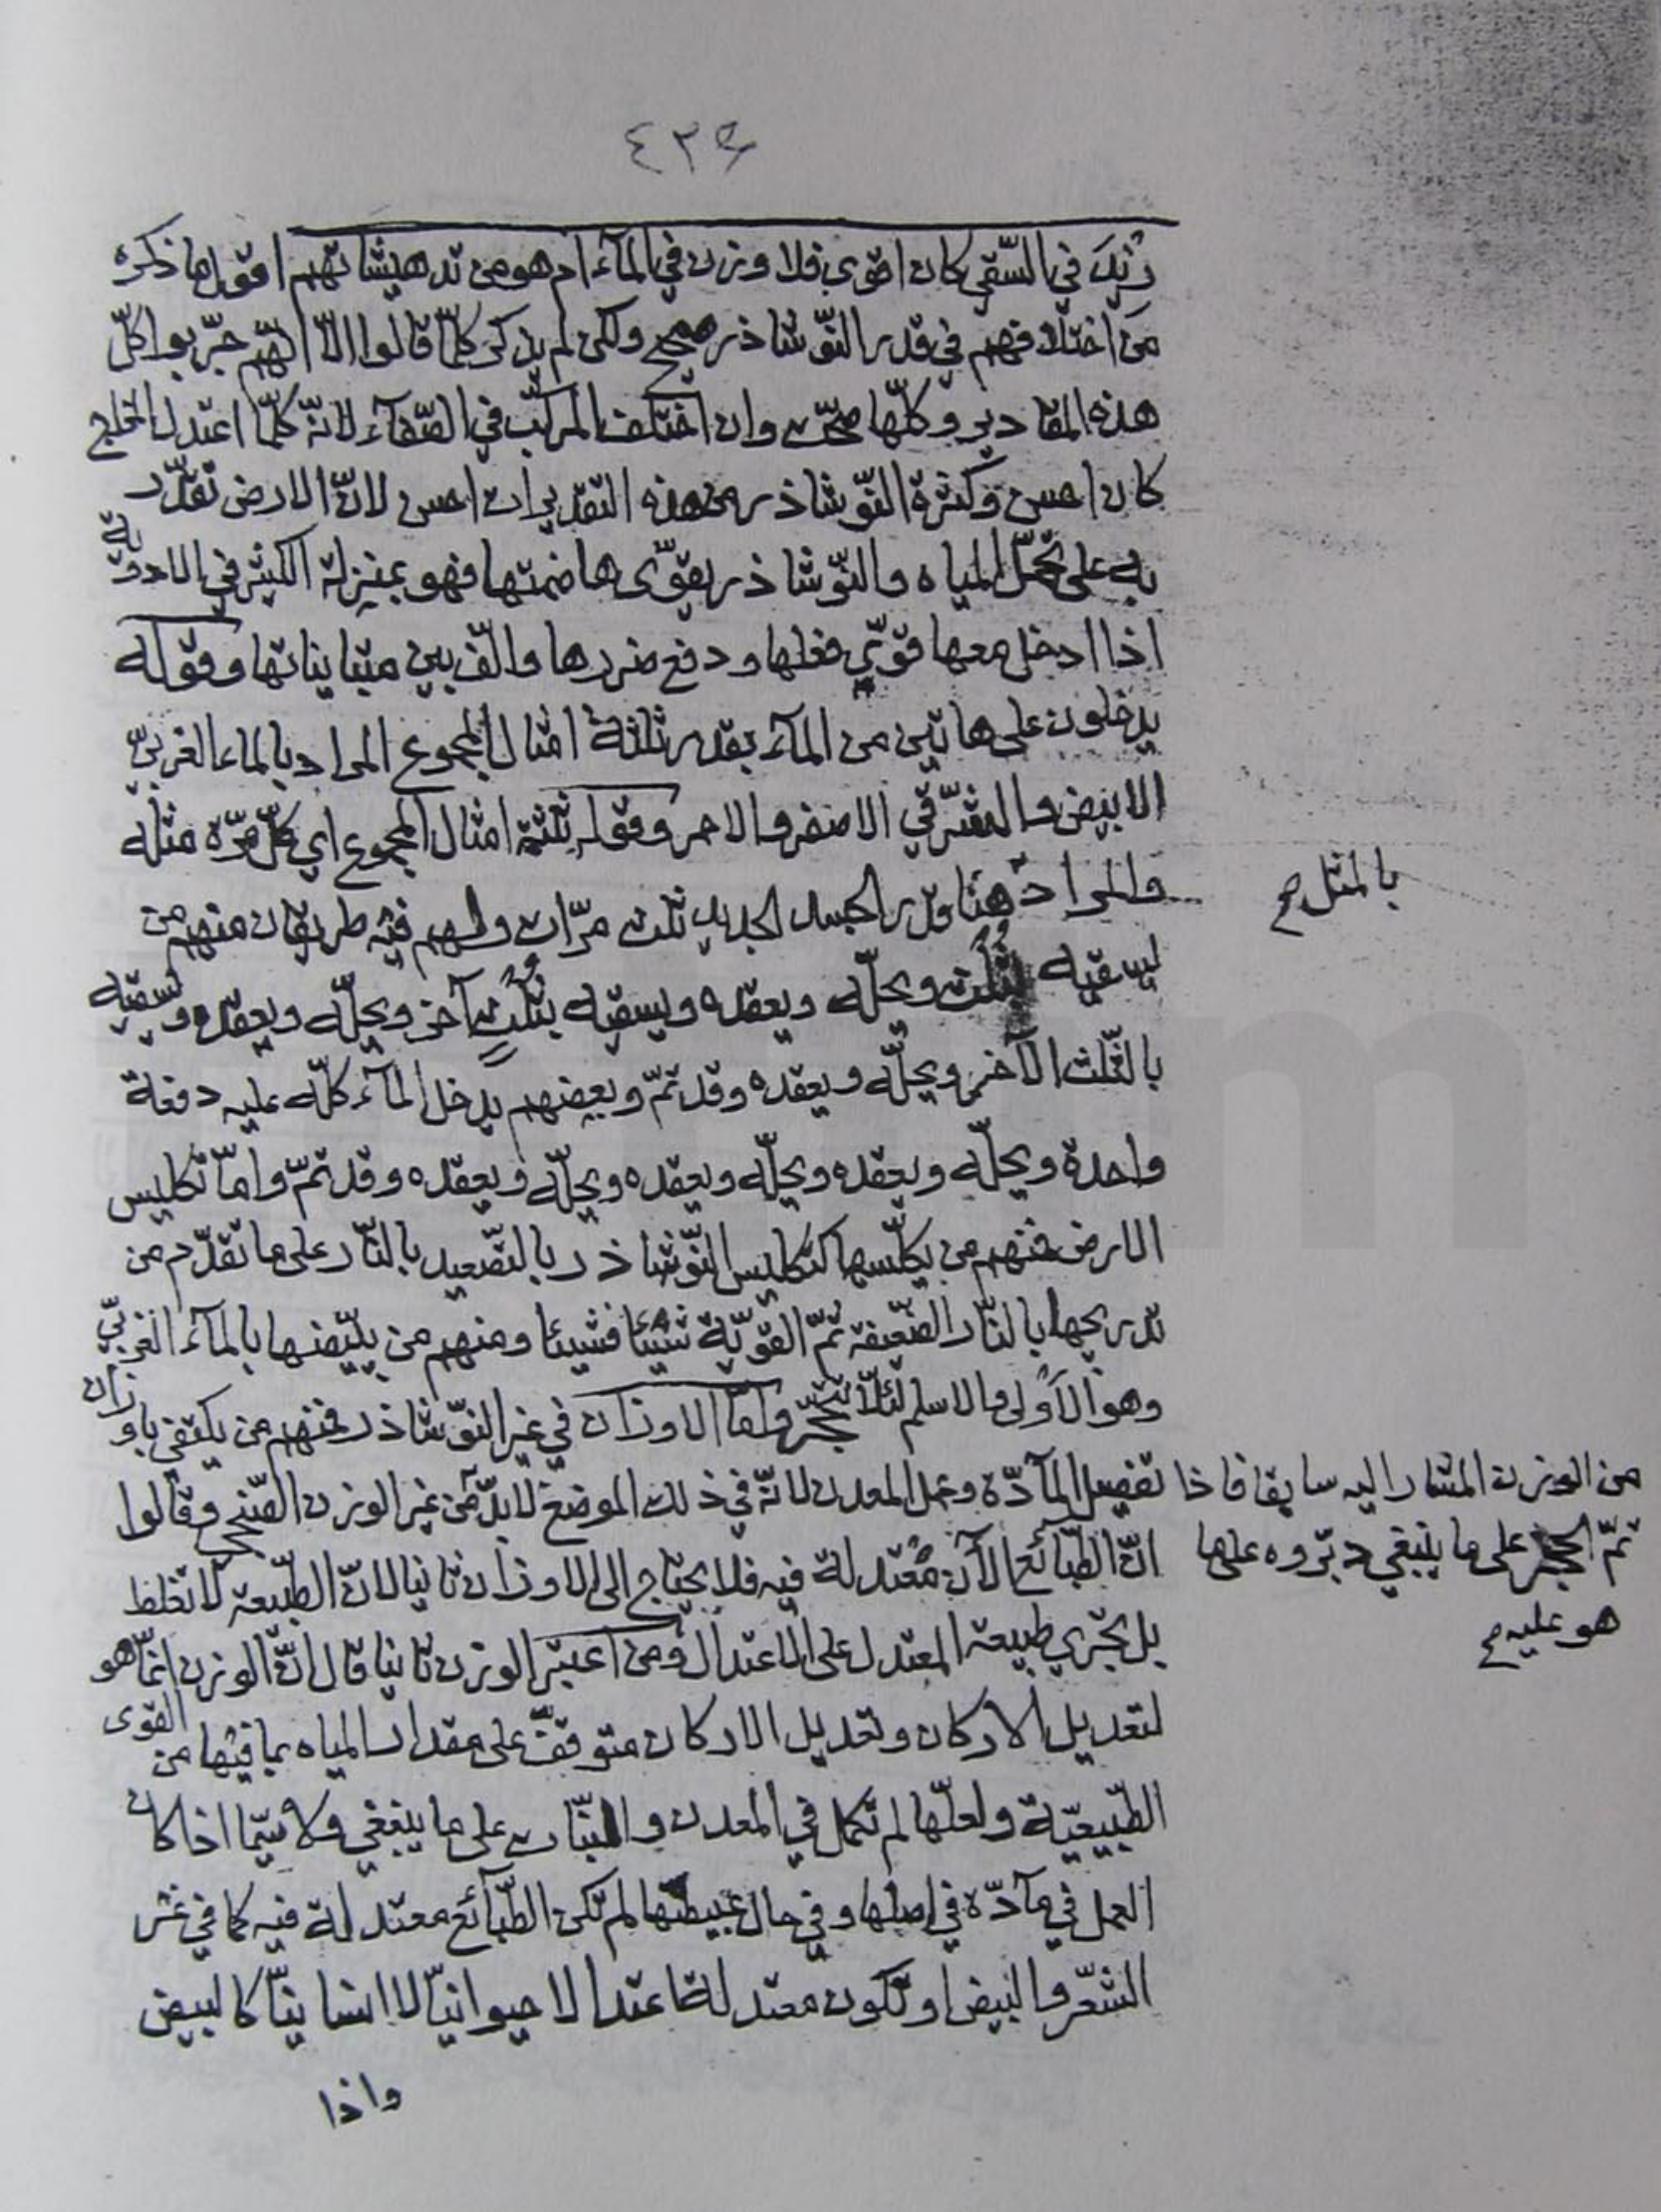 ٤٢٤
زيد في السّقي كان اقوى فلا وزن في المآء ام هو من تدهيشاتهم اقول ما ذكره
من اختلافهم في قدر النّوشاذر صحيح ولكن لم يذكر كلّما قالوا الّا انّهم جرّبوا كلّ
هذه المقادير وكلّها صحّت وان اختلف المركّب في الصّفآء لانّه كلّما اعتدل الخارج
كان احسن وكثرة النّوشاذر من هذه التقديرات احسن لانّ الارض تقدّر
به على تحمّل المياه والنّوشاذر يقوّى هاضمتها فهو بمنزلة الكثير في الادوية
اذا ادخل معها قوّي فعلها ودفع ضررها والّف بين متبايناتها وقوله
يدخلون على هاتين من المآء بقدر ثلثة امثال المجموع المراد بالماء الغربيّ
الابيض والشّرقي الاصفر والاحمر وقوله ثلثة امثال المجموع اي كلّ مرّة مثله
والمراد هنا قدر الجسد الجديد ثلث مرّات ولهم فيه طريقان منهم من
بالمثل صح
يسقيه بثُلُث ويحلّه ويعقده ويسقيه بثُلُثٍ آخر ويحلّه ويعقده ويسقيه
بالثّلث الآخر ويحلّه ويعقده وقد تمّ وبعضهم يدخل المآء كلّه عليه دفعة
واحدة ويحلّه ويعقده ويحلّه ويعقده ويحلّه ويعقده وقد تمّ وامّا تكليس
الارض فمنهم من يكلّسها كتكليس النّوشاذر بالتّصعيد بالنّار على ما تقدّم من
تدريجها بالنّار الضّعيفة ثمّ القويّة شيئا فشيئا ومنهم من يبيّضها بالمآء الغربيّ
وهو الاَولى والاسلم لئلّا تتحجّر وامّا الاوزان في غير النّوشاذر فمنهم من يكتفي باوزان
تفصيل المآدّة وعمل المعدن لانّه في ذلك الموضع لابدّ من غير الوزن الصّحيح وقالوا
من الوزن المشار اليه سابقا فاذا
انّ الطّبآئع الآن مُعْتدلة فيه فلا يحتاج الى الاوزان ثانيا لانّ الطّبيعة لا تغلط
تمّ الحجر على ما ينبغي دبّروه على ما
بل تجري طبيعة المعتدل على الاعتدال ومن اعتبر الوزن ثانيا قال انّ الوزن انّما هو
هو عليه صح
لتعديل الاركان وتعديل الاركان متوقّف على مقدار المياه بما فيها من القوى
الطّبيعيّة ولعلّها لم تكمل في المعدن والنّبات على ما ينبغي ولا سيّما اذا كان
العمل في مآدّة في اصلها وفي حال غبيطتها لم تكن الطّبآئع معتدلة فيه كما في غير
الشّعر والبيض او تكون معتدلة اعتدالا حيوانيّا لا انسانيّا كالبيض
واذا